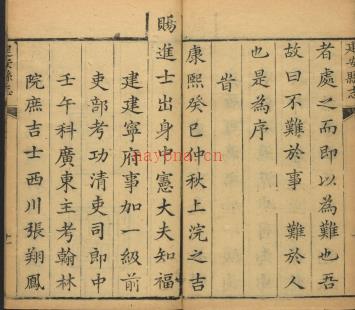 建安縣志
者處之而即以為難也吾
故曰不難於事 難於人
也是為序
旹
康熙癸巳仲秋上浣之吉
賜進士出身中憲大夫知福
建建寧府事加一級前
吏部考功清吏司郎中
壬午科廣東主考翰林
院庶吉士西川張翔鳳
建安縣志
haypna.com